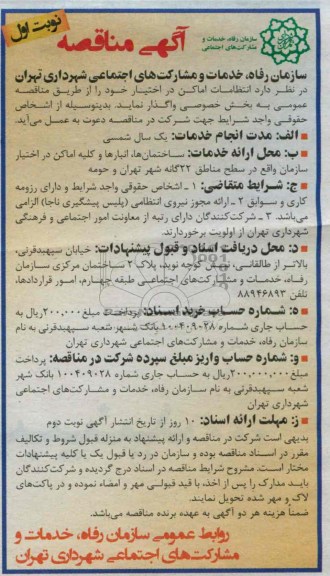 نوبت اول
آگهی مناقصه
سازمان رفاه، خدمات و
مشارکت‌های اجتماعی
سازمان رفاه، خدمات و مشارکت‌های اجتماعی شهرداری تهران
در نظر دارد انتظامات اماکن در اختیار خود را از طریق مناقصه
عمومی به بخش خصوصی واگذار نماید. بدینوسیله از اشخاص
حقوقی واجد شرایط جهت شرکت در مناقصه دعوت به عمل می‌آید.
الف: مدت انجام خدمات: یک سال شمسی
ب: محل ارائه خدمات: ساختمان‌ها، انبارها و کلیه اماکن در اختیار
سازمان واقع در سطح مناطق ۲۲گانه شهر تهران و حومه
ج: شرایط متقاضی: ۱ ـ اشخاص حقوقی واجد شرایط و دارای رزومه
کاری و سوابق ۲ ـ ارائه مجوز نیروی انتظامی (پلیس پیشگیری ناجا) الزامی
می‌باشد. ۳ ـ شرکت‌کنندگان دارای رتبه از معاونت امور اجتماعی و فرهنگی
شهرداری تهران از اولویت برخوردارند.
د: محل دریافت اسناد و قبول پیشنهادات: خیابان سپهبدقرنی،
بالاتر از طالقانی، نبش کوچه نوید، پلاک ۲ ساختمان مرکزی سازمان
رفاه، خدمات و مشارکت‌های اجتماعی طبقه چهارم، امور قراردادها،
تلفن ۸۸۹۴۶۸۹۳
ه: شماره حساب خرید اسناد: پرداخت مبلغ ۲۰۰,۰۰۰ریال به
حساب جاری شماره ۱۰۰۴۰۹۰۲۸ بانک شهر شعبه سپهبدقرنی به نام
سازمان رفاه، خدمات و مشارکت‌های اجتماعی شهرداری تهران
و: شماره حساب واریز مبلغ سپرده شرکت در مناقصه: پرداخت
مبلغ ۲۰۰,۰۰۰,۰۰۰ریال به حساب جاری شماره ۱۰۰۴۰۹۰۲۸ بانک شهر
شعبه سپهبدقرنی به نام سازمان رفاه، خدمات و مشارکت‌های اجتماعی
شهرداری تهران
ز: مهلت ارائه اسناد: ۱۰ روز از تاریخ انتشار آگهی نوبت دوم
بدیهی است شرکت در مناقصه و ارائه پیشنهاد به منزله قبول شروط و تکالیف
مقرر در اسناد مناقصه بوده و سازمان در رد یا قبول یک یا کلیه پیشنهادات
مختار است. مشروح شرایط مناقصه در اسناد درج گردیده و شرکت‌کنندگان
باید مدارک را پس از اخذ، با قید قبولی مهر و امضاء نموده و در پاکت‌های
لاک و مهر شده تحویل نمایند.
ضمناً هزینه هر دو آگهی به عهده برنده مناقصه می‌باشد.
روابط عمومی سازمان رفاه، خدمات و
مشارکت‌های اجتماعی شهرداری تهران